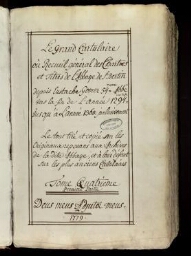 Le Grand Cartulaire
ou Recueil général des Chartres
et Titres de l'Abbaye de St Bertin
depuis
la fin de l'année 1294
jusqu'en l'année
Le tout tiré et copié sur les
Originaux reposans aux Archives
de la dite Abbaye, et à leur défaut
sur les plus anciens Cartulaires.
Tome Quatrieme
Deus meus
1779